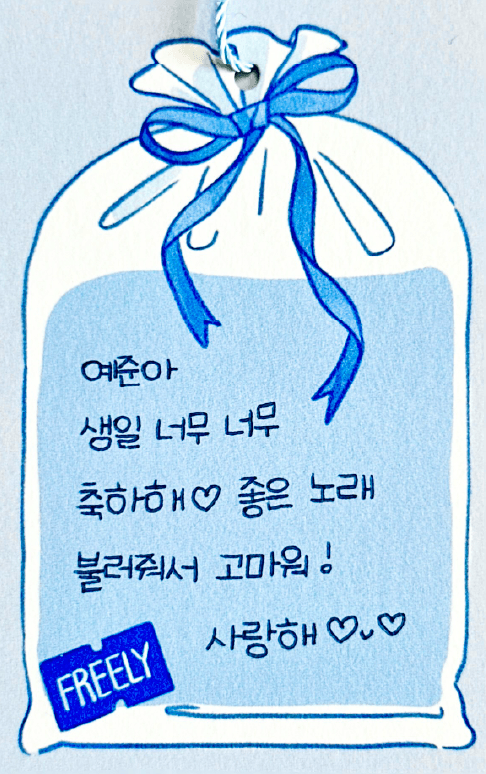 예쥰아
생일 너무 너무
축하해♡ 좋은 노래
불러줘서 고마워!
사랑해♡ᴗ♡
FREELY